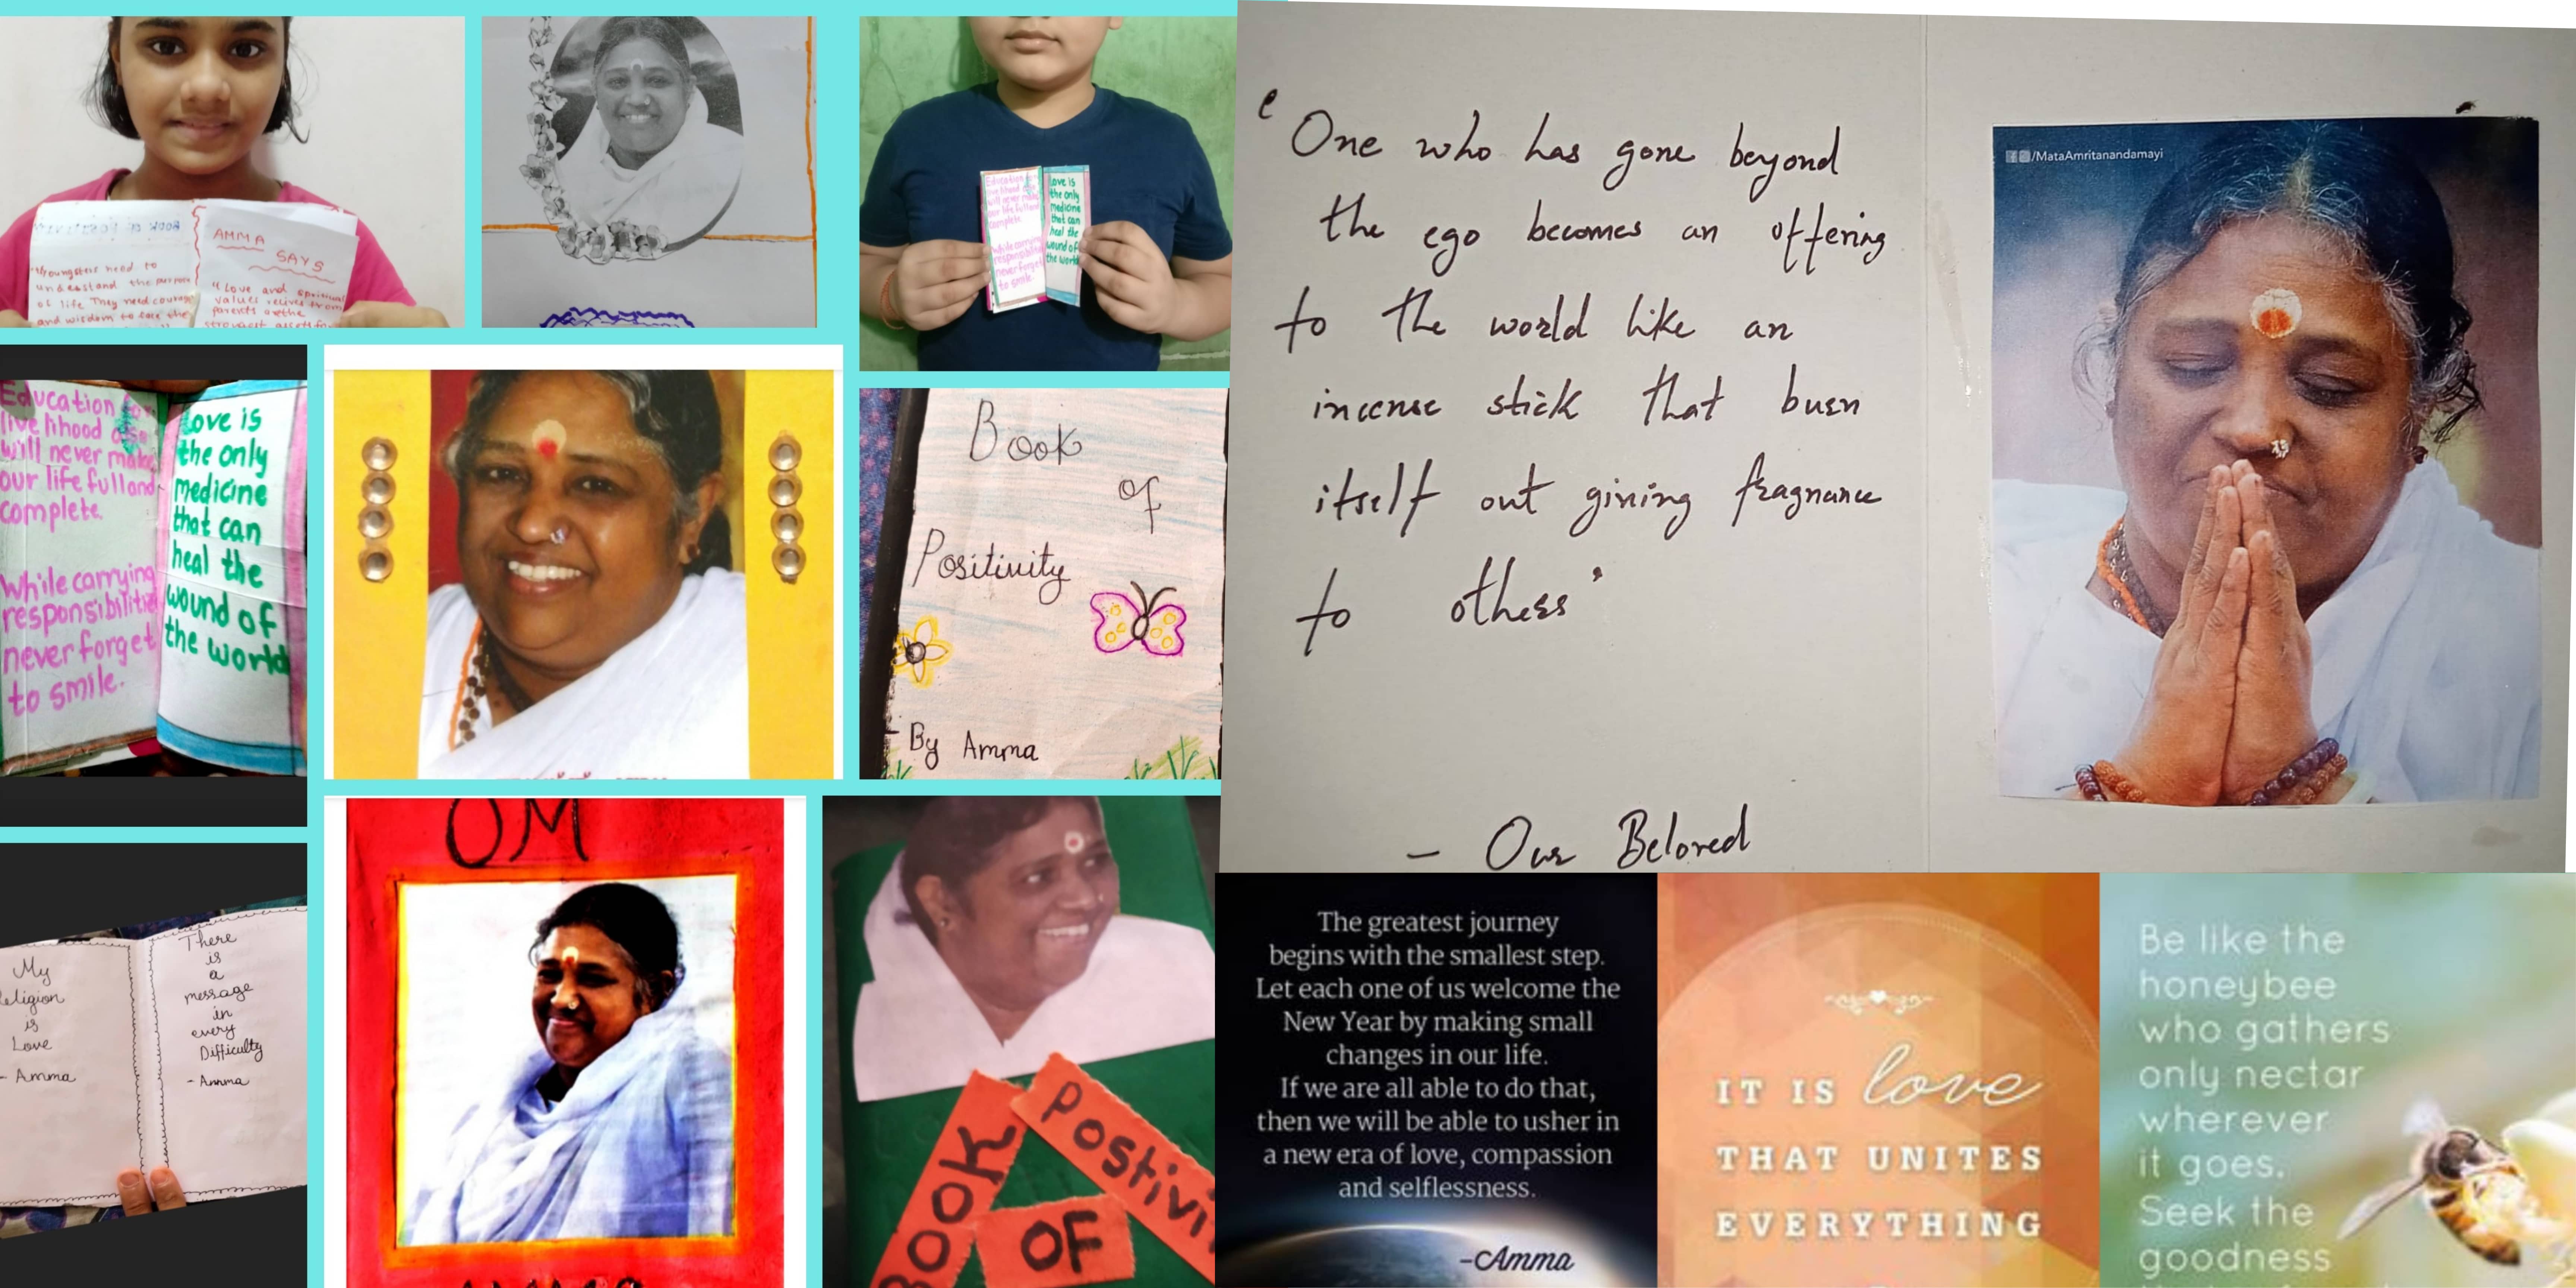 BOOK OF POSITIVITY
AMMA
SAYS
"Youngsters need to
understand the purpose
of life They need courage
and wisdom to face the
"Love and spiritual
values recives from
parents are the
strongest assets for
Education for
live lihood
will never make
our life full and
complete.
While carrying
responsibilities
never forget
to smile.
Love is
the only
medicine
that can
heal the
wound of
the world
Education for
live lihood
will never make
our life full and
complete.
While carrying
responsibilities
never forget
to smile.
Love is
the only
medicine
that can
heal the
wound of
the world
Book
of
Positivity
- By Amma
My
Religion
is
Love
- Amma
There
is
a
message
in
every
Difficulty
- Amma
OM
AMMA
BOOK
OF
Postivi
One who has gone beyond
the ego becomes an offering
to the world like an
incense stick that burn
itself out giving fragnance
to others'
- Our Beloved
/MataAmritanandamayi
The greatest journey
begins with the smallest step.
Let each one of us welcome the
New Year by making small
changes in our life.
If we are all able to do that,
then we will be able to usher in
a new era of love, compassion
and selflessness.
-Amma
IT IS love
THAT UNITES
EVERYTHING
Be like the
honeybee
who gathers
only nectar
wherever
it goes.
Seek the
goodness